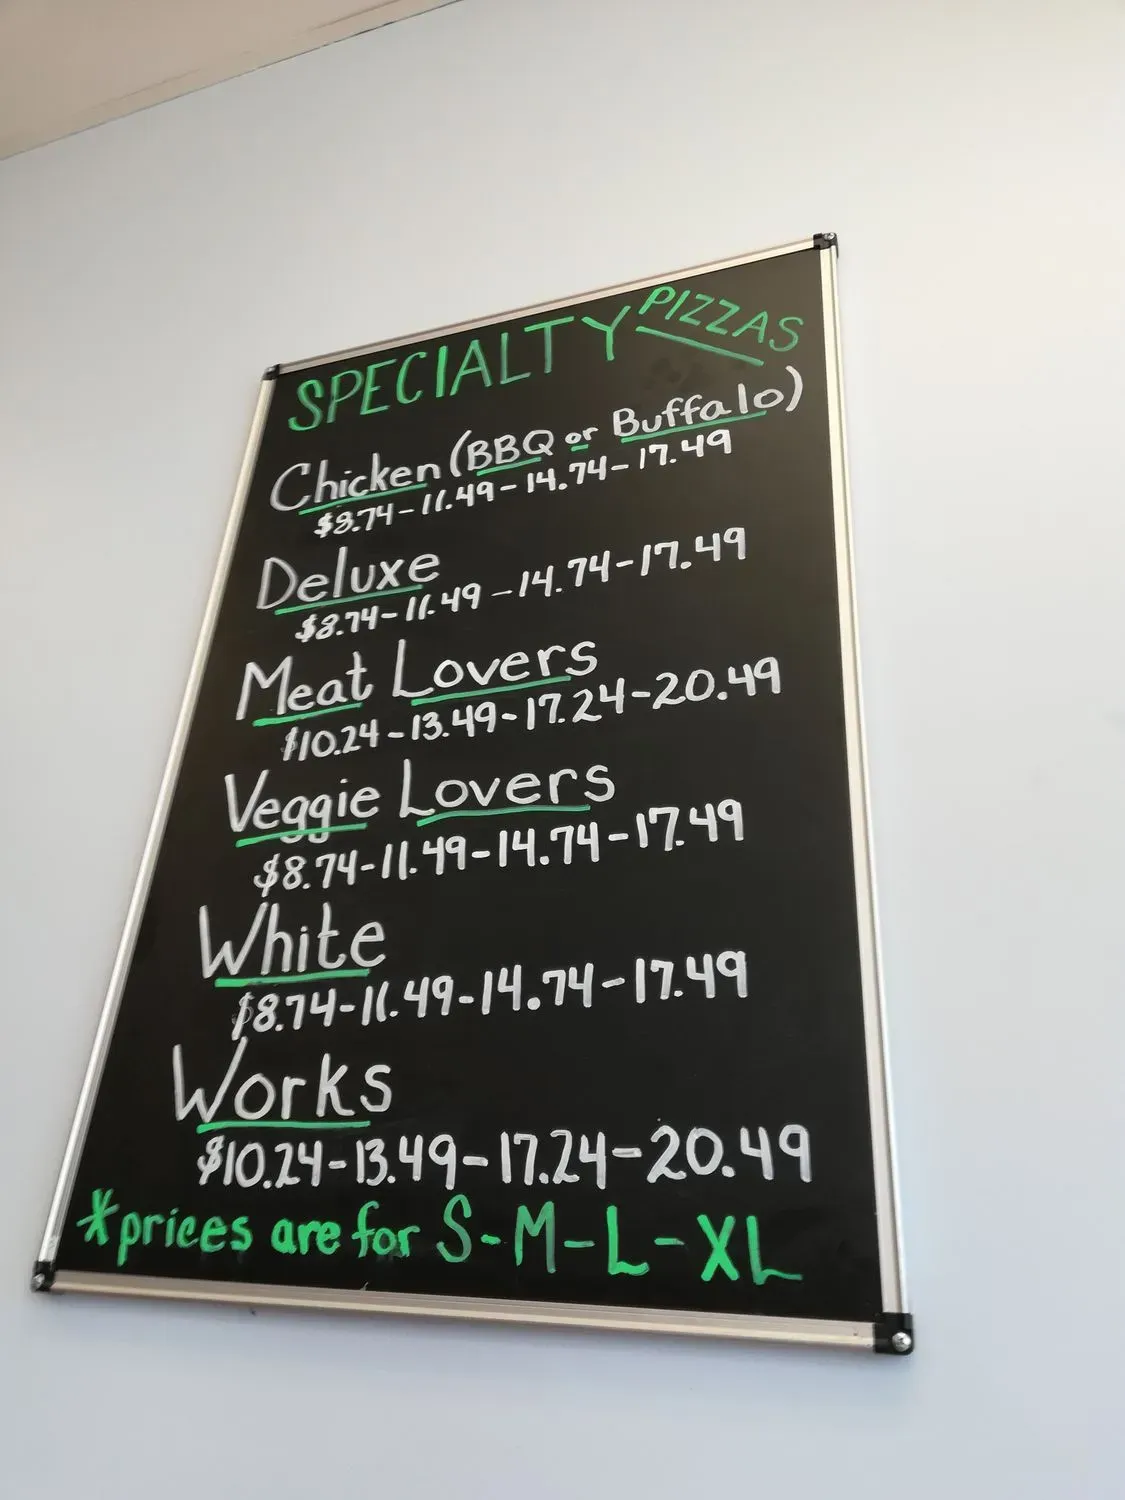 SPECIALTY PIZZAS
Chicken (BBQ or Buffalo)
$8.74-11.49-14.74-17.49
Deluxe
$8.74-11.49-14.74-17.49
Meat Lovers
$10.24-13.49-17.24-20.49
Veggie Lovers
$8.74-11.49-14.74-17.49
White
$8.74-11.49-14.74-17.49
Works
$10.24-13.49-17.24-20.49
*prices are for S-M-L-XL